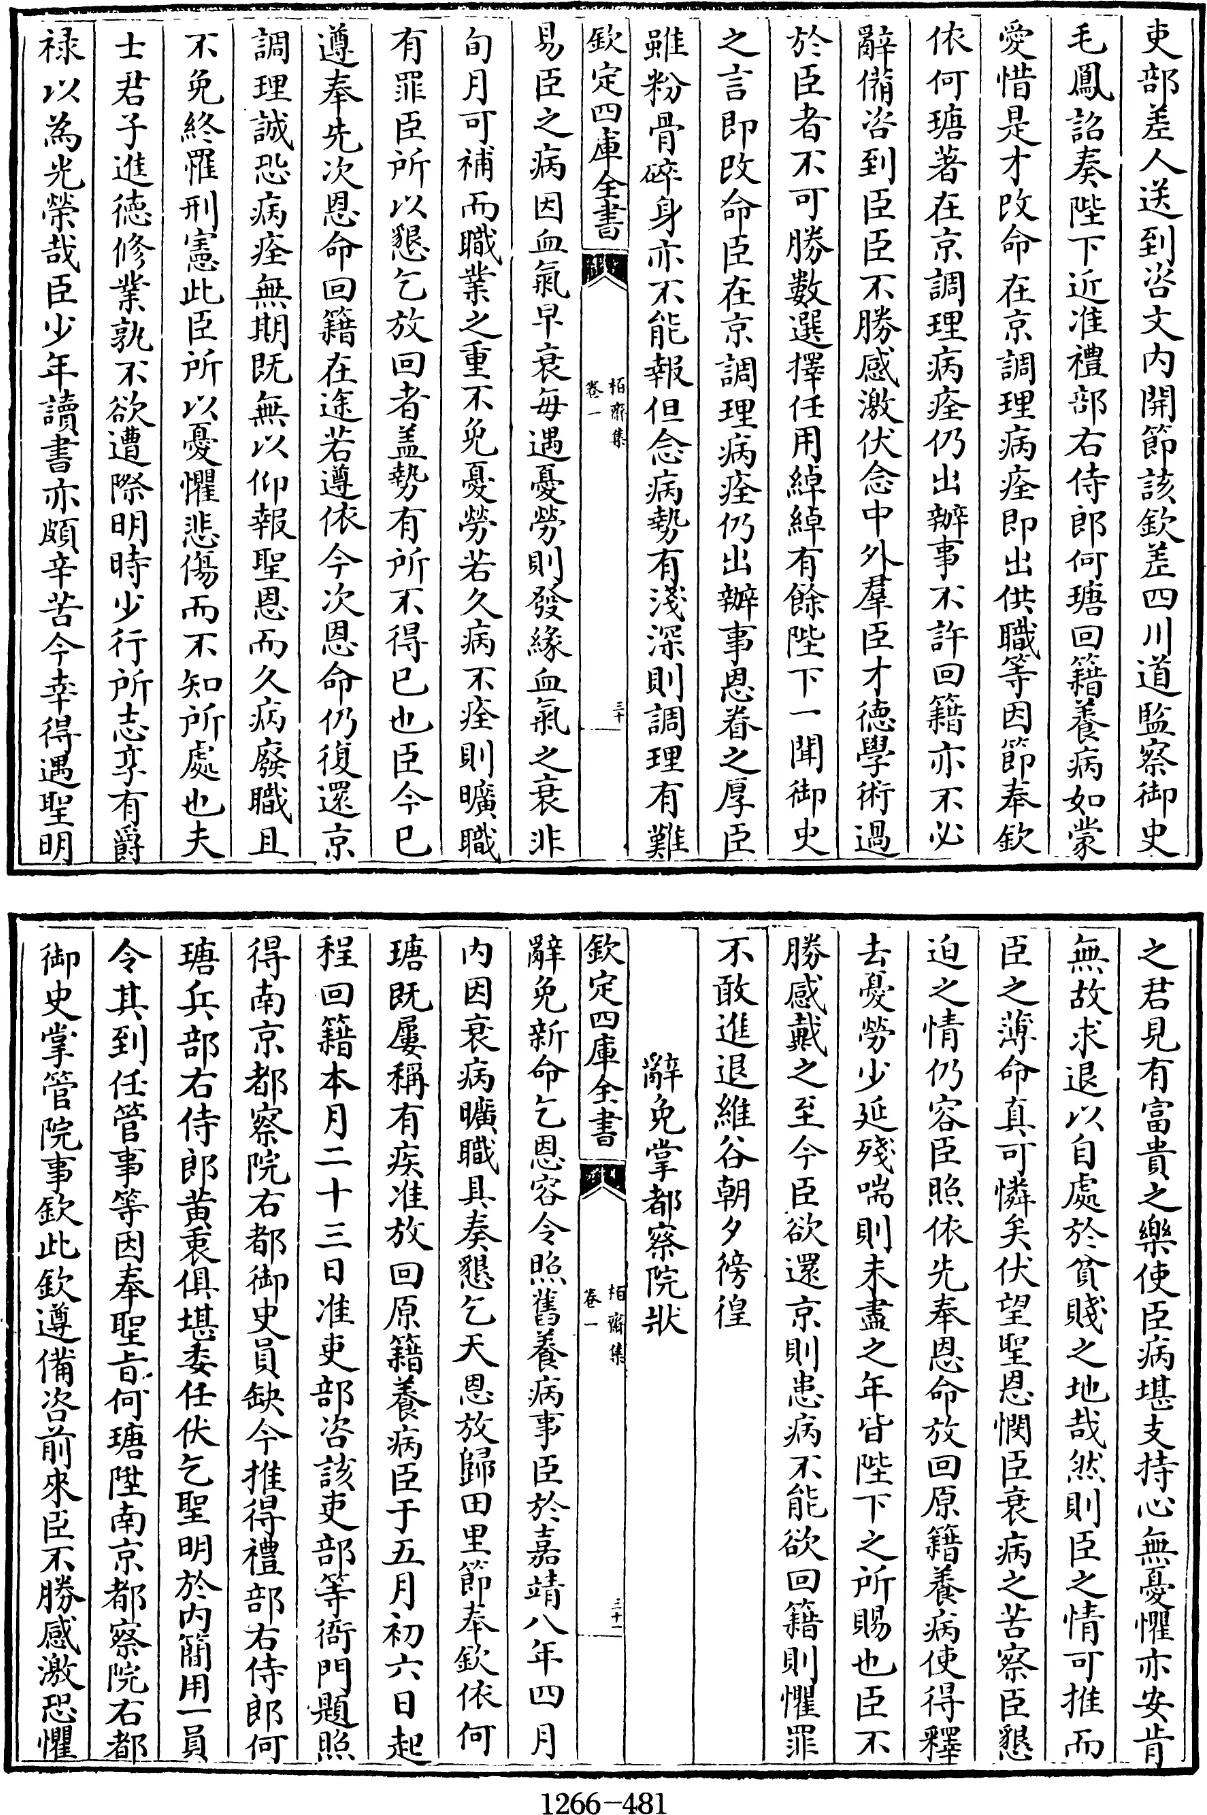 吏部差人送到咨文内開節該欽差四川道監察御史
毛鳳詔奏陛下近准禮部右侍郎何瑭回籍養病如蒙
愛惜是才改命在京調理病痊即出供職等因節奉欽
依何瑭著在京調理病痊仍出辦事不許回籍亦不必
辭備咨到臣臣不勝感激伏念中外羣臣才德學術過
於臣者不可勝數選擇任用綽綽有餘陛下一聞御史
之言即改命臣在京調理病痊仍出辦事恩眷之厚臣
雖粉骨碎身亦不能報但念病勢有淺深則調理有難
欽定四庫全書
栢齋集
卷一
三十
易臣之病因血氣早衰每遇憂勞則發緣血氣之衰非
旬月可補而職業之重不免憂勞若久病不痊則曠職
有罪臣所以懇乞放回者盖勢有所不得已也臣今已
遵奉先次恩命回籍在途若遵依今次恩命仍復還京
調理誠恐病痊無期既無以仰報聖恩而久病廢職且
不免終罹刑憲此臣所以憂懼悲傷而不知所處也夫
士君子進德修業孰不欲遭際明時少行所志享有爵
禄以為光榮哉臣少年讀書亦頗辛苦今幸得遇聖明
之君見有富貴之樂使臣病堪支持心無憂懼亦安肯
無故求退以自處於貧賤之地哉然則臣之情可推而
臣之薄命真可憐矣伏望聖恩憫臣衰病之苦察臣懇
迫之情仍容臣照依先奉恩命放回原籍養病使得釋
去憂勞少延殘喘則未盡之年皆陛下之所賜也臣不
勝感戴之至今臣欲還京則患病不能欲回籍則懼罪
不敢進退維谷朝夕徬徨
辭免掌都察院狀
欽定四庫全書
栢齋集
卷一
三十一
辭免新命乞恩容令照舊養病事臣於嘉靖八年四月
内因衰病曠職具奏懇乞天恩放歸田里節奉欽依何
瑭既屢稱有疾准放回原籍養病臣于五月初六日起
程回籍本月二十三日准吏部咨該吏部等衙門題照
得南京都察院右都御史員缺今推得禮部右侍郎何
瑭兵部右侍郎黄衷俱堪委任伏乞聖明於内簡用一員
令其到任管事等因奉聖旨何瑭陞南京都察院右都
御史掌管院事欽此欽遵備咨前來臣不勝感激恐懼
1266-481